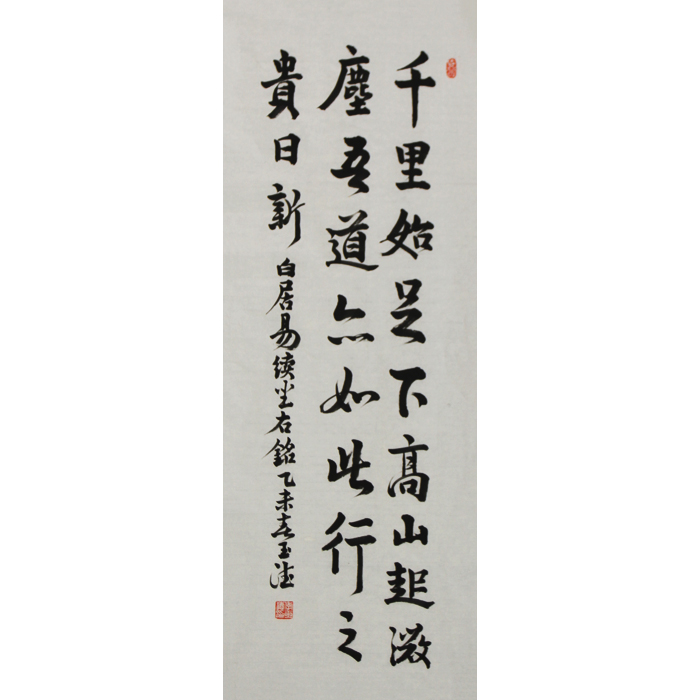 千里始足下高山起微
塵吾道亦如此行之
貴日新
白居易续坐右銘乙未春玉德